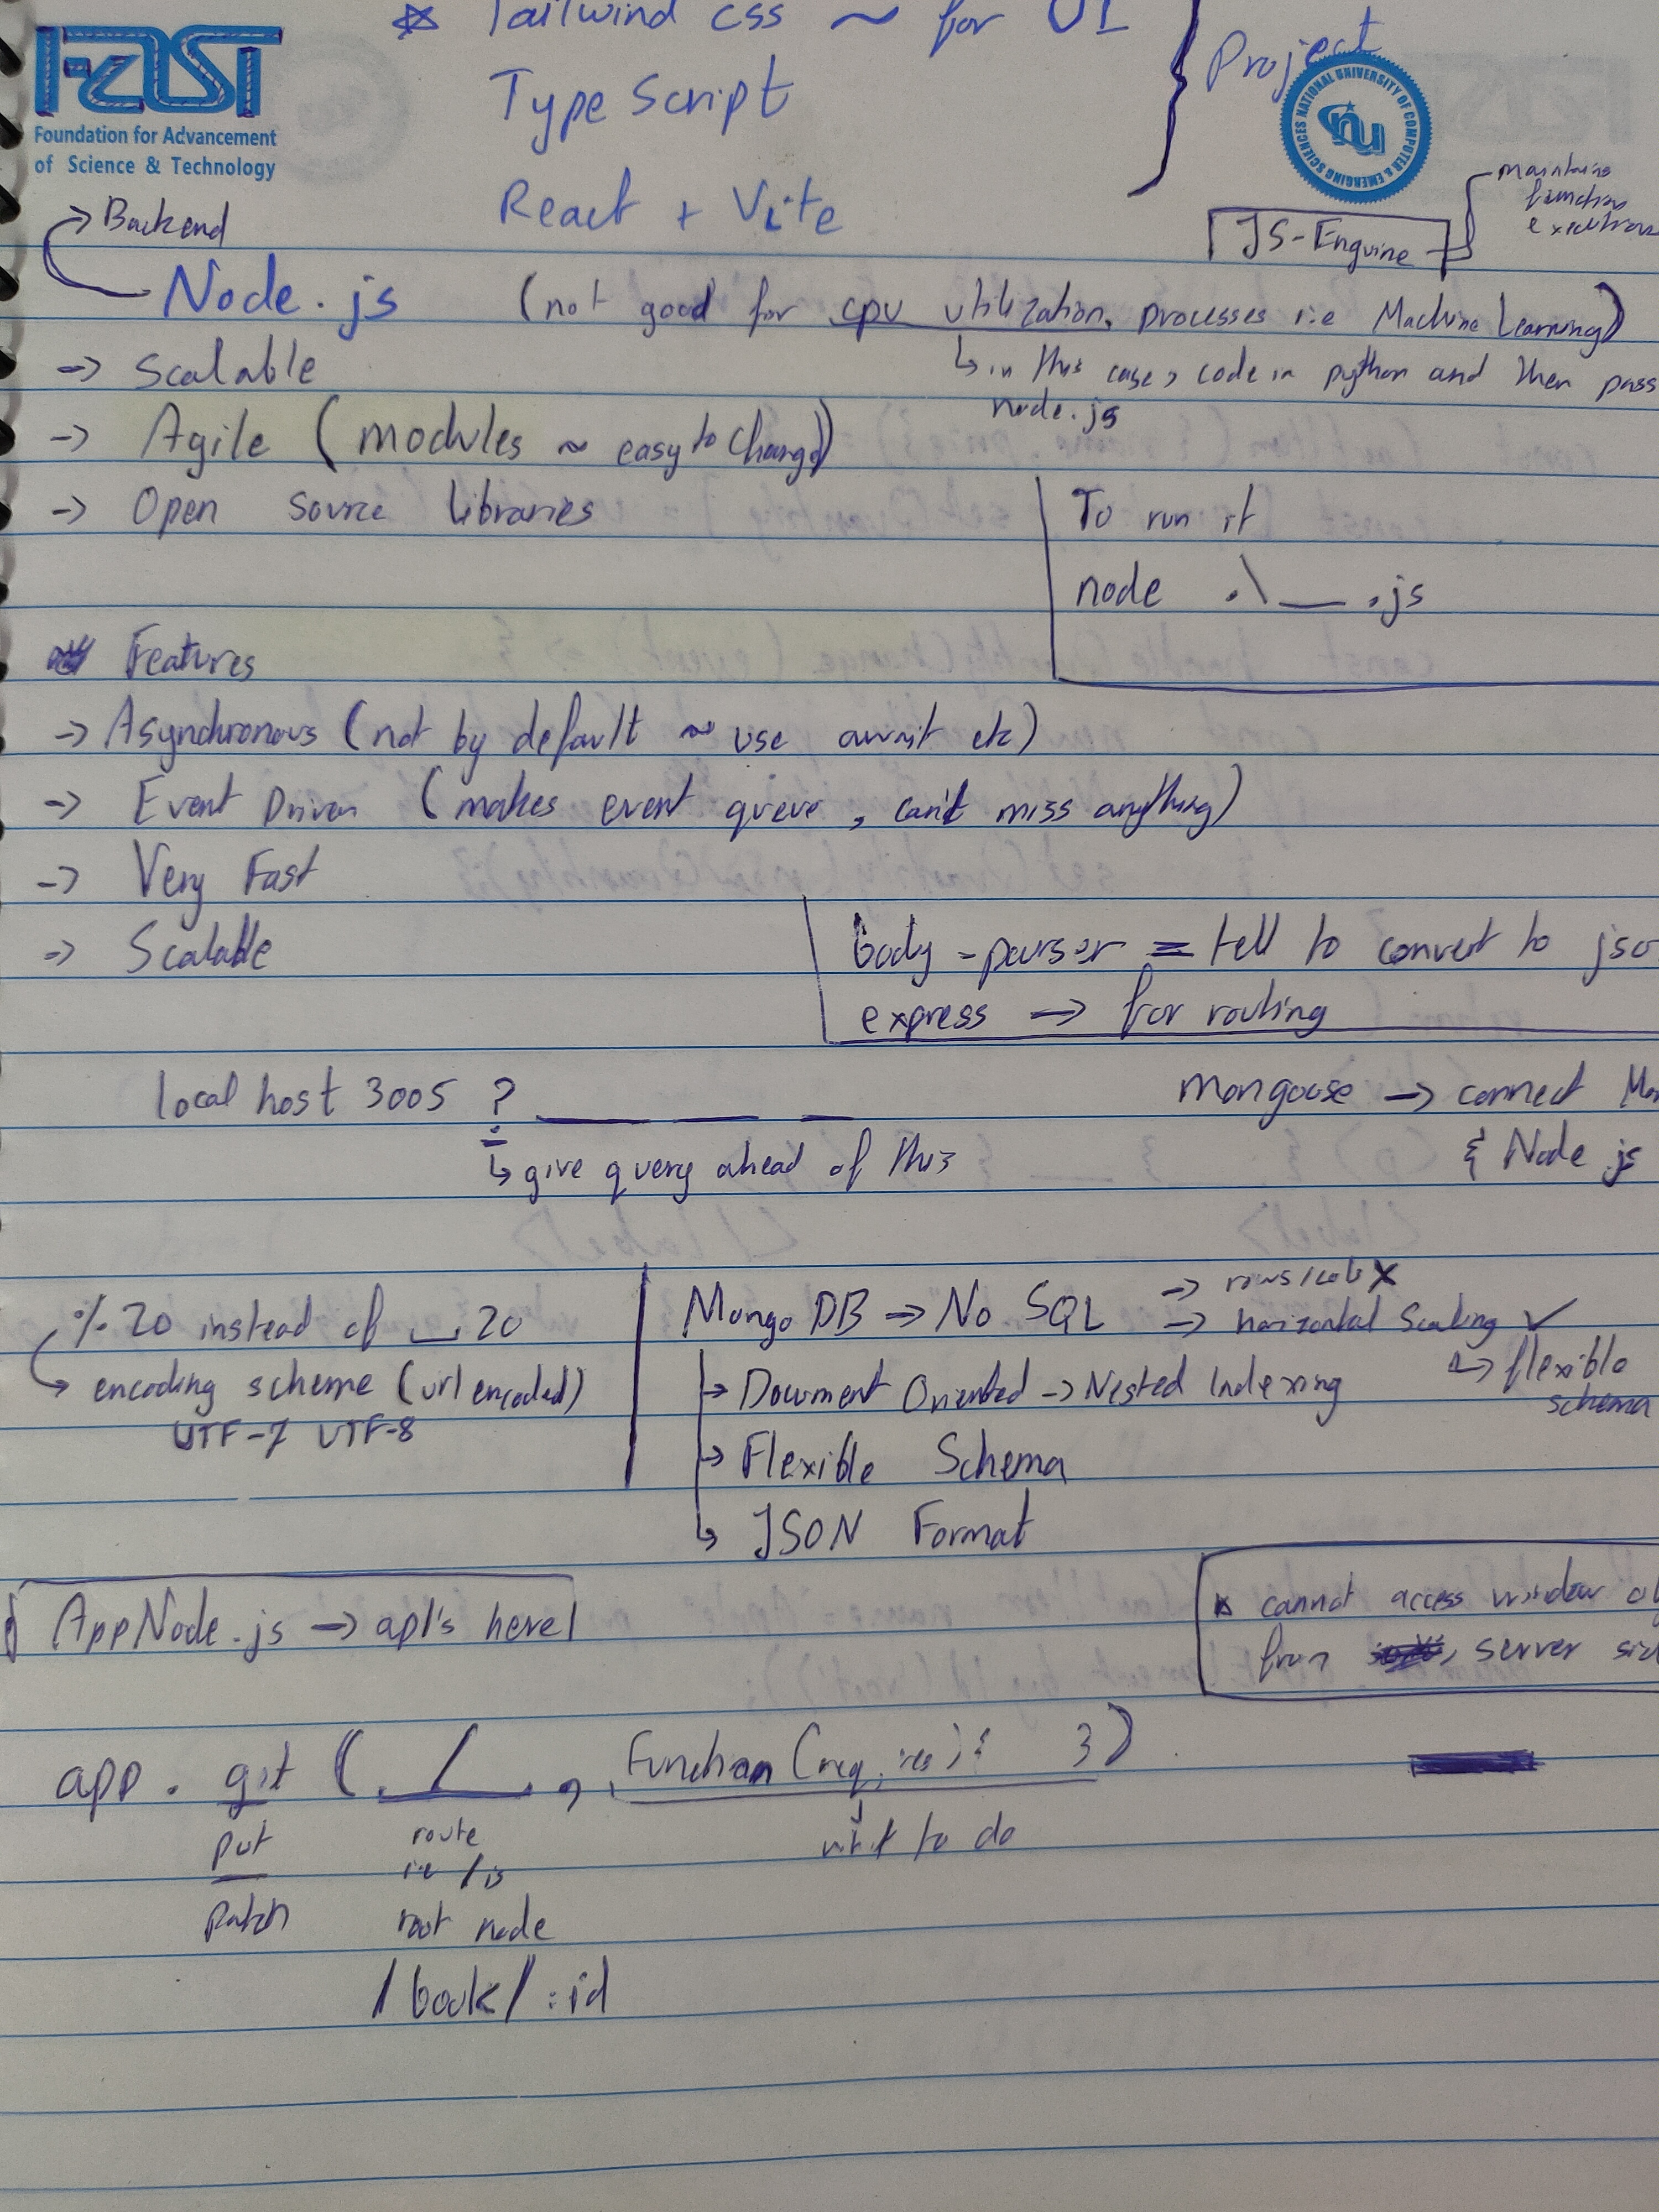 ☆ Tailwind css ~ for UI
TypeScript
React + Vite
Project
FAST
Foundation for Advancement
of Science & Technology
NATIONAL UNIVERSITY OF COMPUTER & EMERGING SCIENCES
nu
JS-Enguine
maintains
function
executions
Backend
Node.js (not good for cpu utilization, processes i.e Machine Learning)
-> Scalable
↳ in this case, code in python and then pass
node.js
-> Agile (modules ~ easy to change)
-> Open Source libraries
To run it
node .\__.js
Features
-> Asynchronous (not by default ~ use await etc)
-> Event Driven (makes event queue, can't miss anything)
-> Very Fast
-> Scalable
body-parser = tell to convert to jso
express -> for routing
local host 3005 ? ___ ___ ___
↳ give query ahead of this
mongoose -> connect Mon
& Node.js
% 20 instead of ␣ 20
encoding scheme (url encoded)
UTF-7 UTF-8
MongoDB -> No SQL
-> rows/cols X
-> horizontal Scaling ✓
↳ flexible
schema
-> Document Oriented -> Nested Indexing
-> Flexible Schema
↳ JSON Format
AppNode.js -> api's here
☆ cannot access window
from server
app.get (_/_, Function(req, res){ })
put
patch
route
ie / is
root node
/book/:id
to do